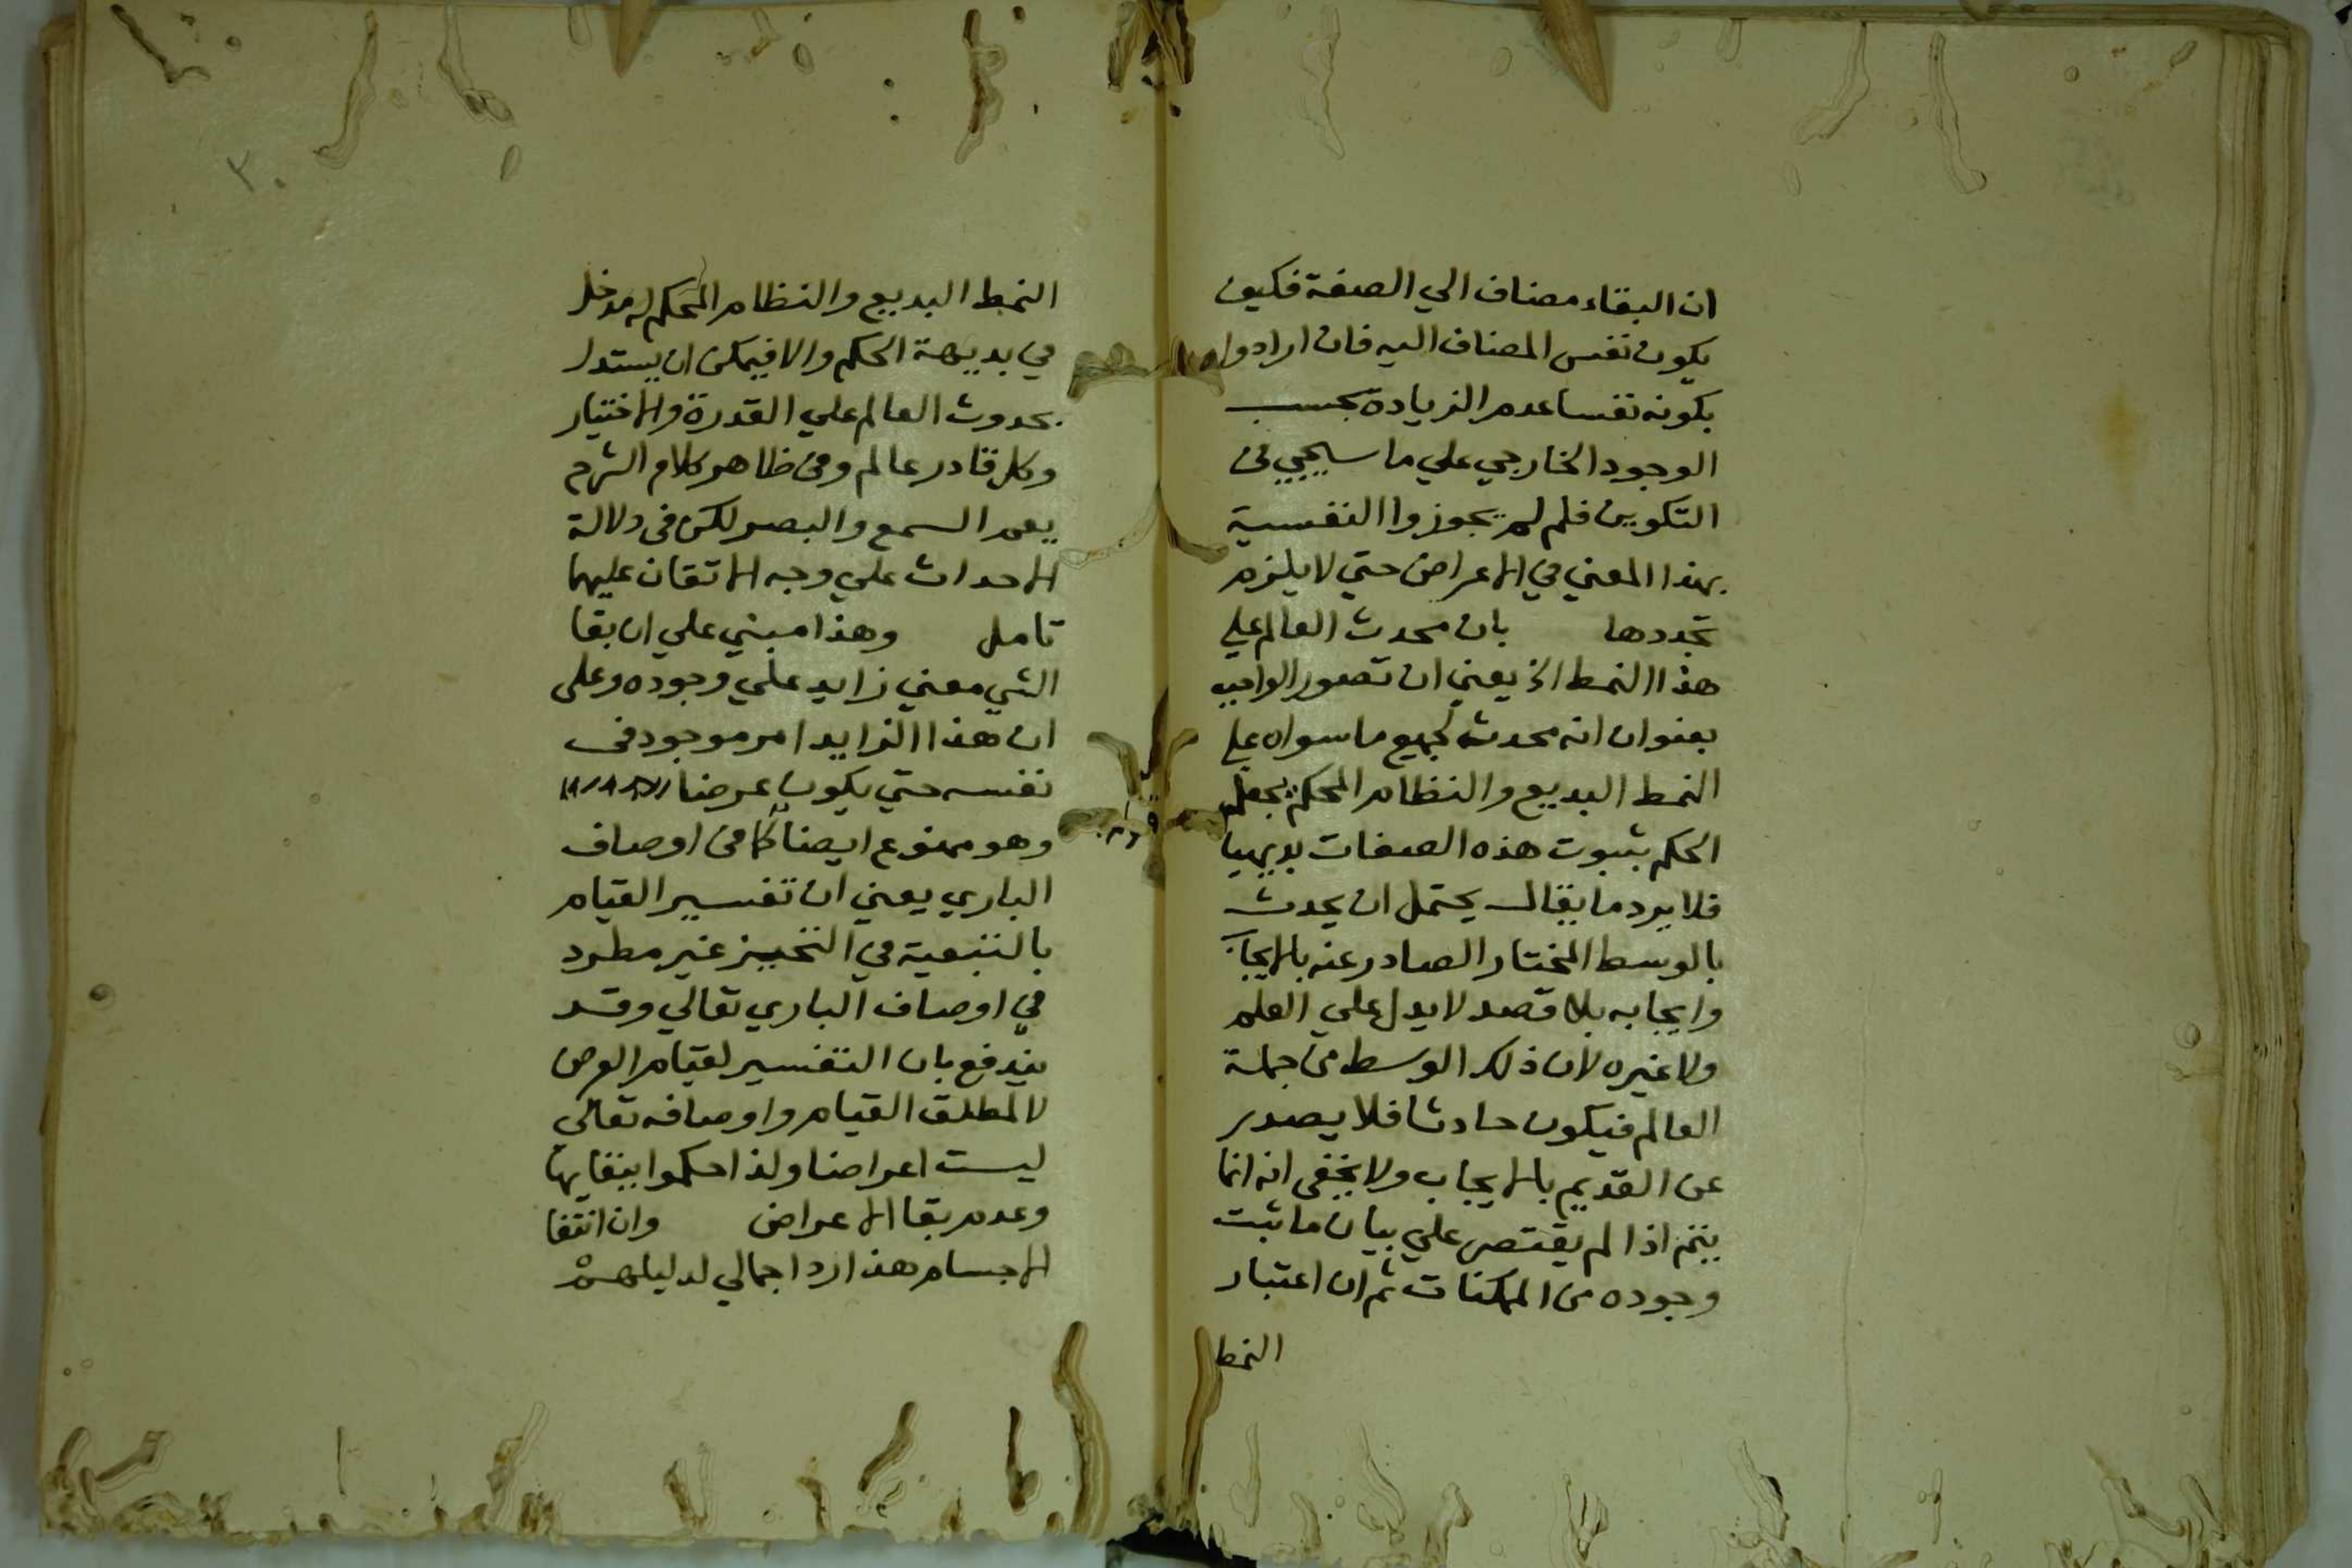 ان البقاء مضاف الي الصفة فكيف
يكون نفس المضاف اليه فان ارادوا
بكونه نفسا عدم الزيادة بحسب
الوجود الخارجي علي ما سيجيي في
التكوين فلم لم يجوزوا النفسية
بهذا المعني في الاعراض حتي لا يلزم
تجددها بان محدث العالم علي
هذا النمط الخ يعني ان تصور الواجب
بعنوان انه محدث لجميع ما سواه علي
النمط البديع والنظام المحكم يجعل
الحكم بثبوت هذه الصفات بديهيا
فلا يرد ما يقال يحتمل ان يحدث
بالوسط المختار الصادر عنه بالايجاب
وايجابه بلا قصد لا يدل علي العلم
ولا غيره لان ذلك الوسط من جملة
العالم فيكون حادثا فلا يصدر
عن القديم بالايجاب ولا يخفي انه انما
يتم اذا لم يقتصر علي بيان ما ثبت
وجوده من الممكنات ثم ان اعتبار
النمط
٣٠
النمط البديع والنظام المحكم له مدخل
في بديهة الحكم والا فيمكن ان يستدل
بحدوث العالم علي القدرة والاختيار
وكل قادر عالم ومن ظاهر كلام الشرح
يعم السمع والبصر لكن في دلالة
الاحداث علي وجه الاتقان عليهما
تامل وهذا مبني علي ان بقا
الشي معني زايد علي وجوده وعلي
ان هذا الزايد امر موجود في
نفسه حتي يكون عرضا
وهو ممنوع ايضا كما في اوصاف
الباري يعني ان تفسير القيام
بالتبعية في التحيز غير مطرد
في اوصاف الباري تعالي وقد
يندفع بان التفسير لقيام العرض
لا لمطلق القيام واوصافه تعالي
ليست اعراضا ولذا حكموا ببقايها
وعدم بقا الاعراض وان انتفا
الاجسام هذا رد اجمالي لدليلهم